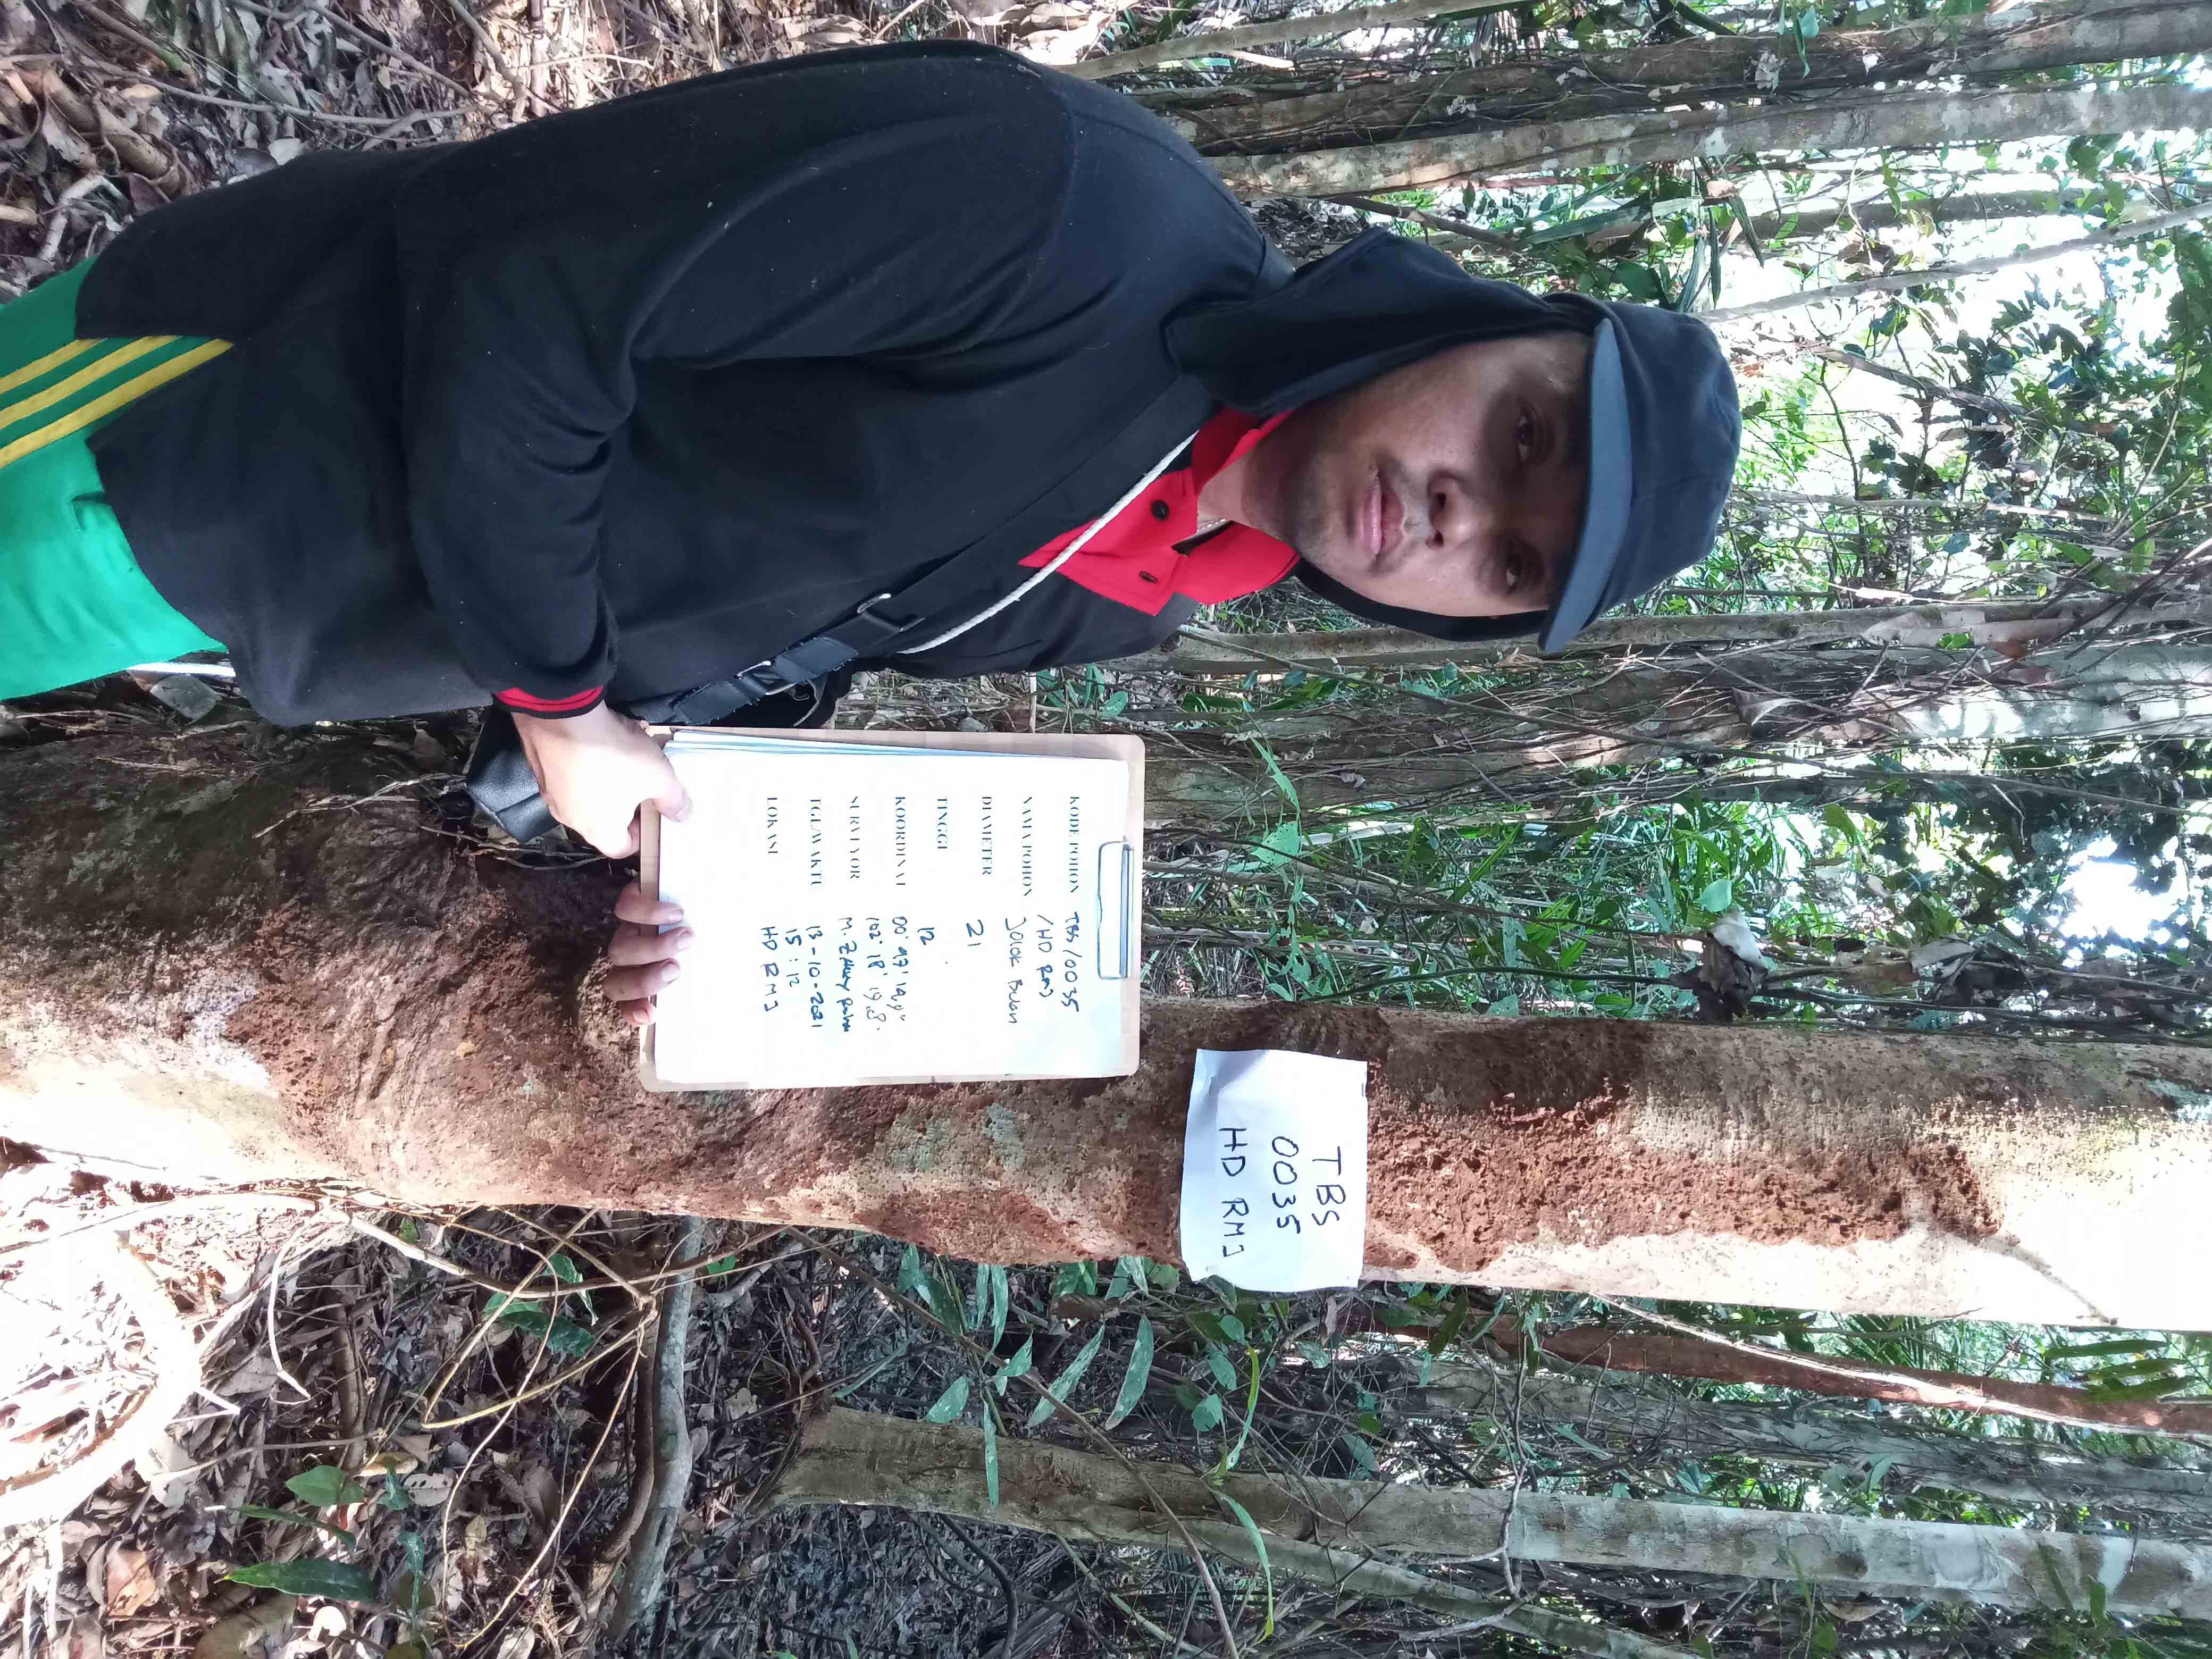 TBS
0035
HD RMJ
KODE POHON TBS/0035
/HD RMJ
NAMA POHON Jolok Buan
DIAMETER 21
TINGGI 12
KOORDINAT 00° 47' 19,9"
102° 18' 19,8"
SURVEYOR M.
TGL/WAKTU 13-10-2021
15:12
LOKASI HD RMJ